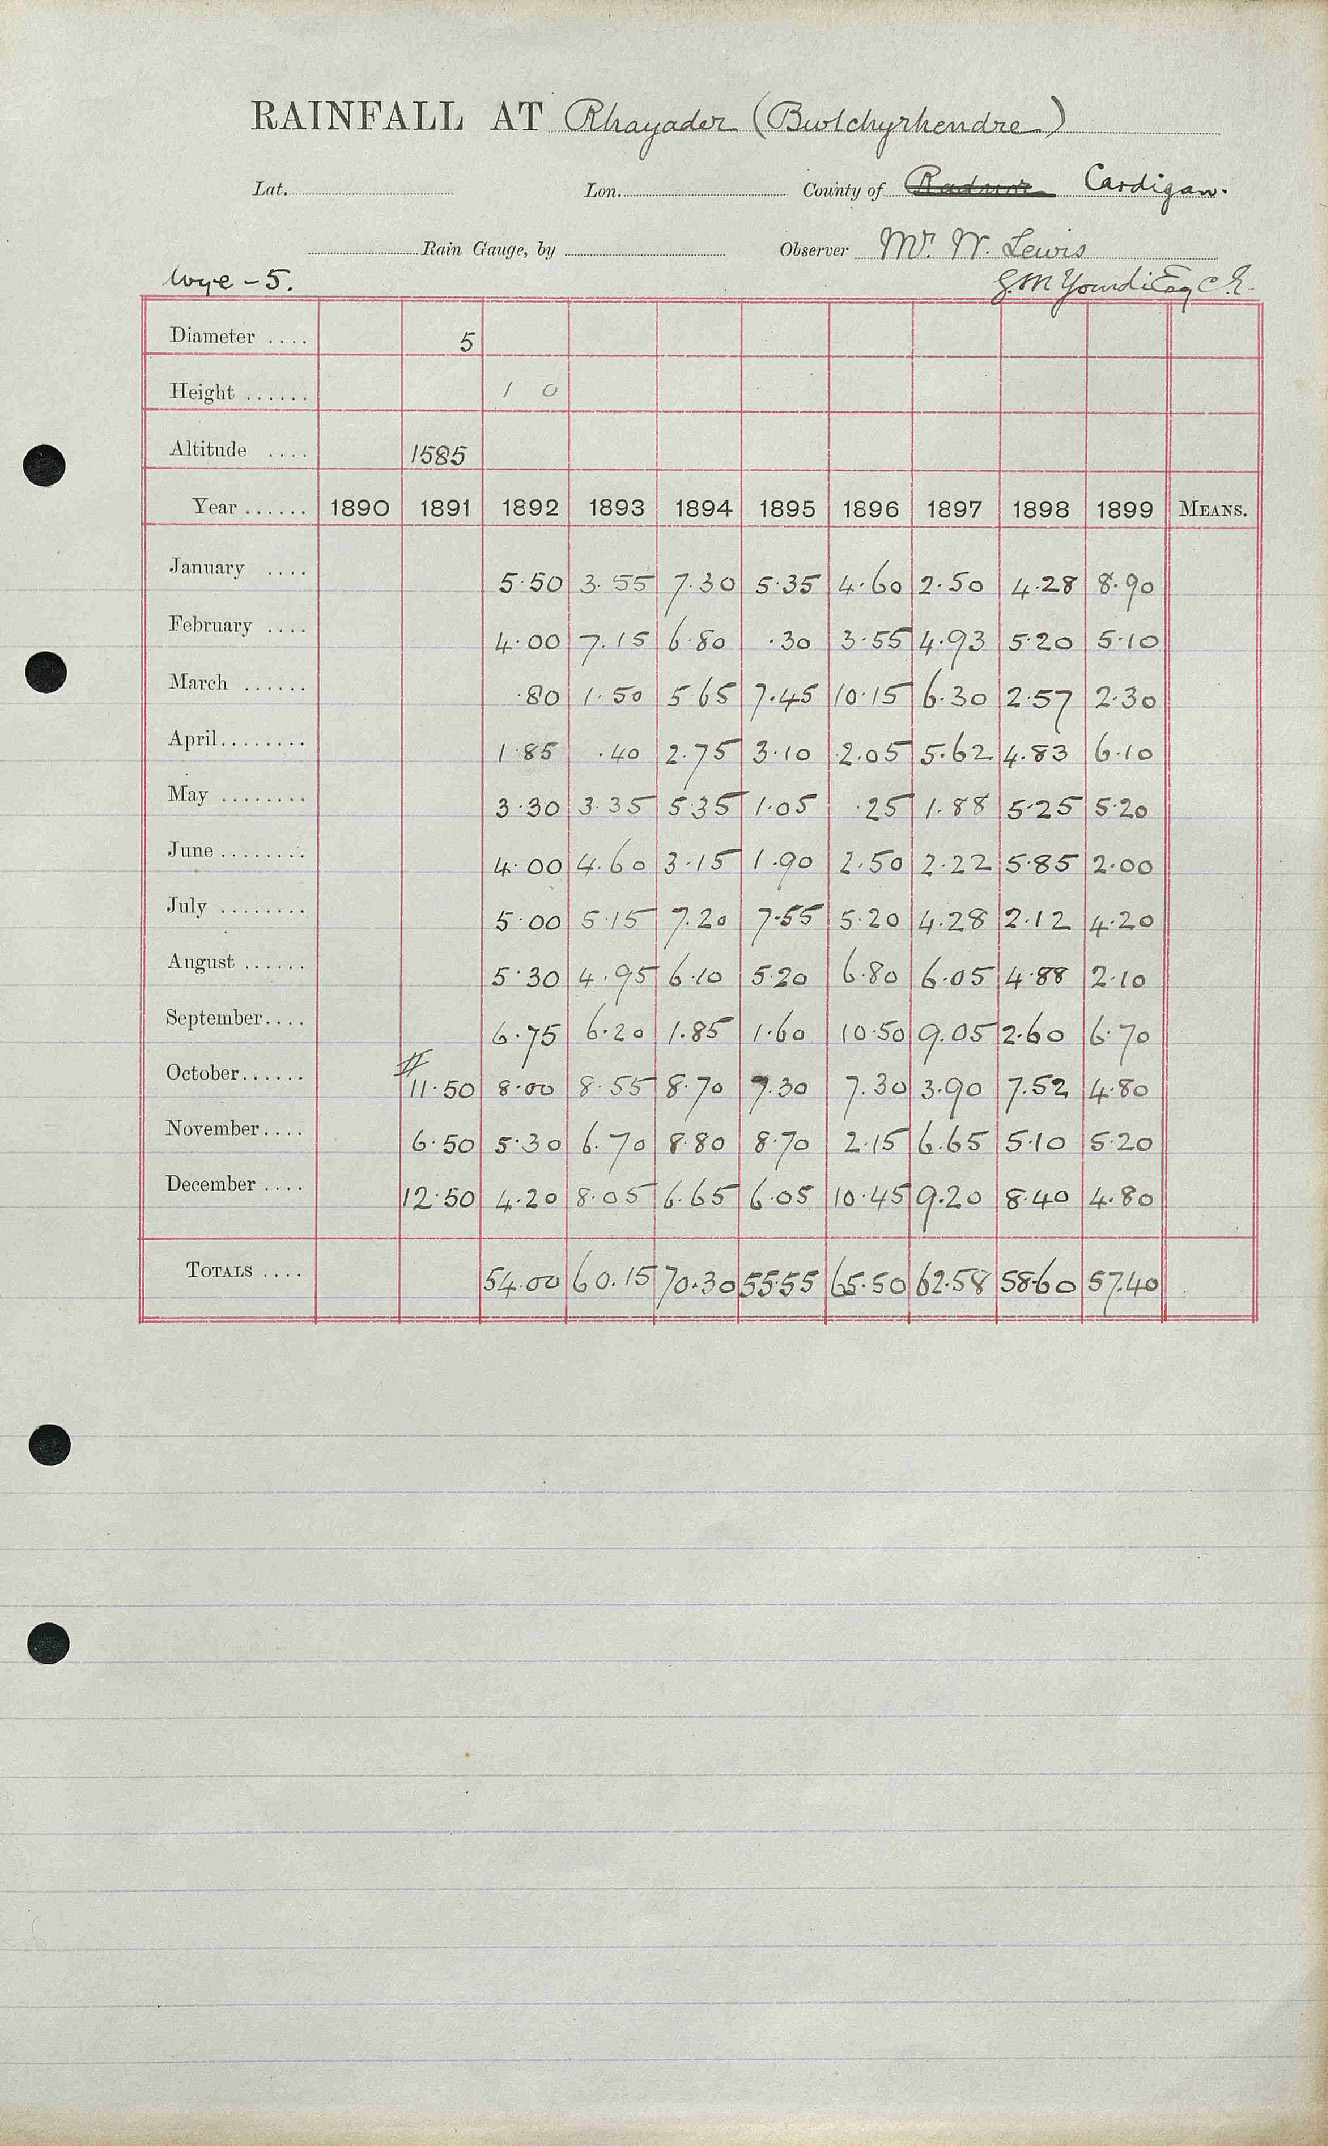 RAINFALL AT Rhayader (Bwlchyrhendre)
Lat. Lon. County of Radnor Cardigan.
Rain Gauge, by Observer Mr. W. Lewis
Wye - 5. G.M Esq C.E.
Diameter .... 5
Height ...... 1 0
Altitude .... 1585
Year ...... 1890 1891 1892 1893 1894 1895 1896 1897 1898 1899 MEANS.
January .... 5.50 3.55 7.30 5.35 4.60 2.50 4.28 8.90
February .... 4.00 7.15 6.80 .30 3.55 4.93 5.20 5.10
March ...... .80 1.50 5.65 7.45 10.15 6.30 2.57 2.30
April........ 1.85 .40 2.75 3.10 2.05 5.62 4.83 6.10
May ........ 3.30 3.35 5.35 1.05 .25 1.88 5.25 5.20
June ........ 4.00 4.60 3.15 1.90 2.50 2.22 5.85 2.00
July ........ 5.00 5.15 7.20 7.55 5.20 4.28 2.12 4.20
August ...... 5.30 4.95 6.10 5.20 6.80 6.05 4.88 2.10
September.... 6.75 6.20 1.85 1.60 10.50 9.05 2.60 6.70
October...... # 11.50 8.00 8.55 8.70 7.30 7.30 3.90 7.52 4.80
November.... 6.50 5.30 6.70 8.80 8.70 2.15 6.65 5.10 5.20
December .... 12.50 4.20 8.05 6.65 6.05 10.45 9.20 8.40 4.80
TOTALS .... 54.00 60.15 70.30 55.55 65.50 62.58 58.60 57.40